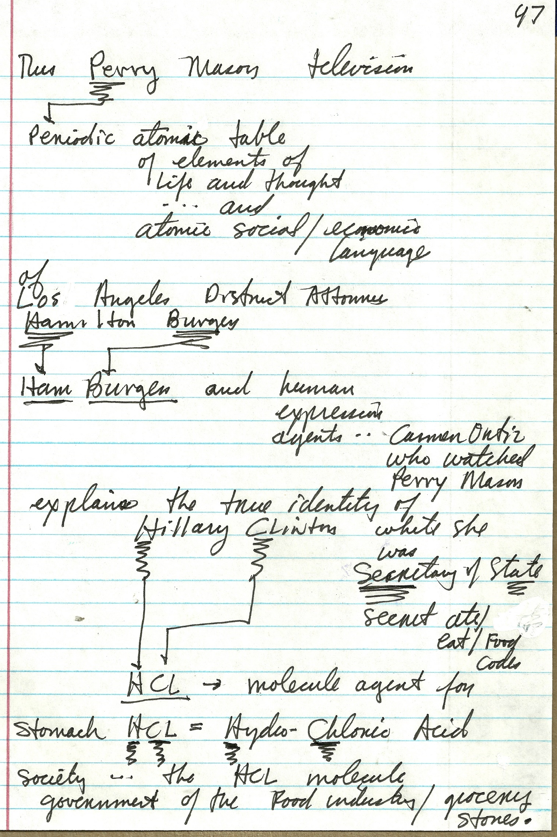 97
Thus Perry Mason television
Periodic atomic table
of elements of
life and thought
.... and
atomic social/economic
language
of
Los Angeles District Attorney
Hamilton Burger
Ham Burger and human
expression
agents .. Carmen Ortiz
who watched
Perry Mason
explains the true identity of
Hillary Clinton while she
was
Secretary of State
secret ate/
eat/Food
Codes
HCL → molecule agent for
stomach HCL = Hydro-Chloric Acid
society ... the HCL molecule
government of the Food industry/grocery
stores.